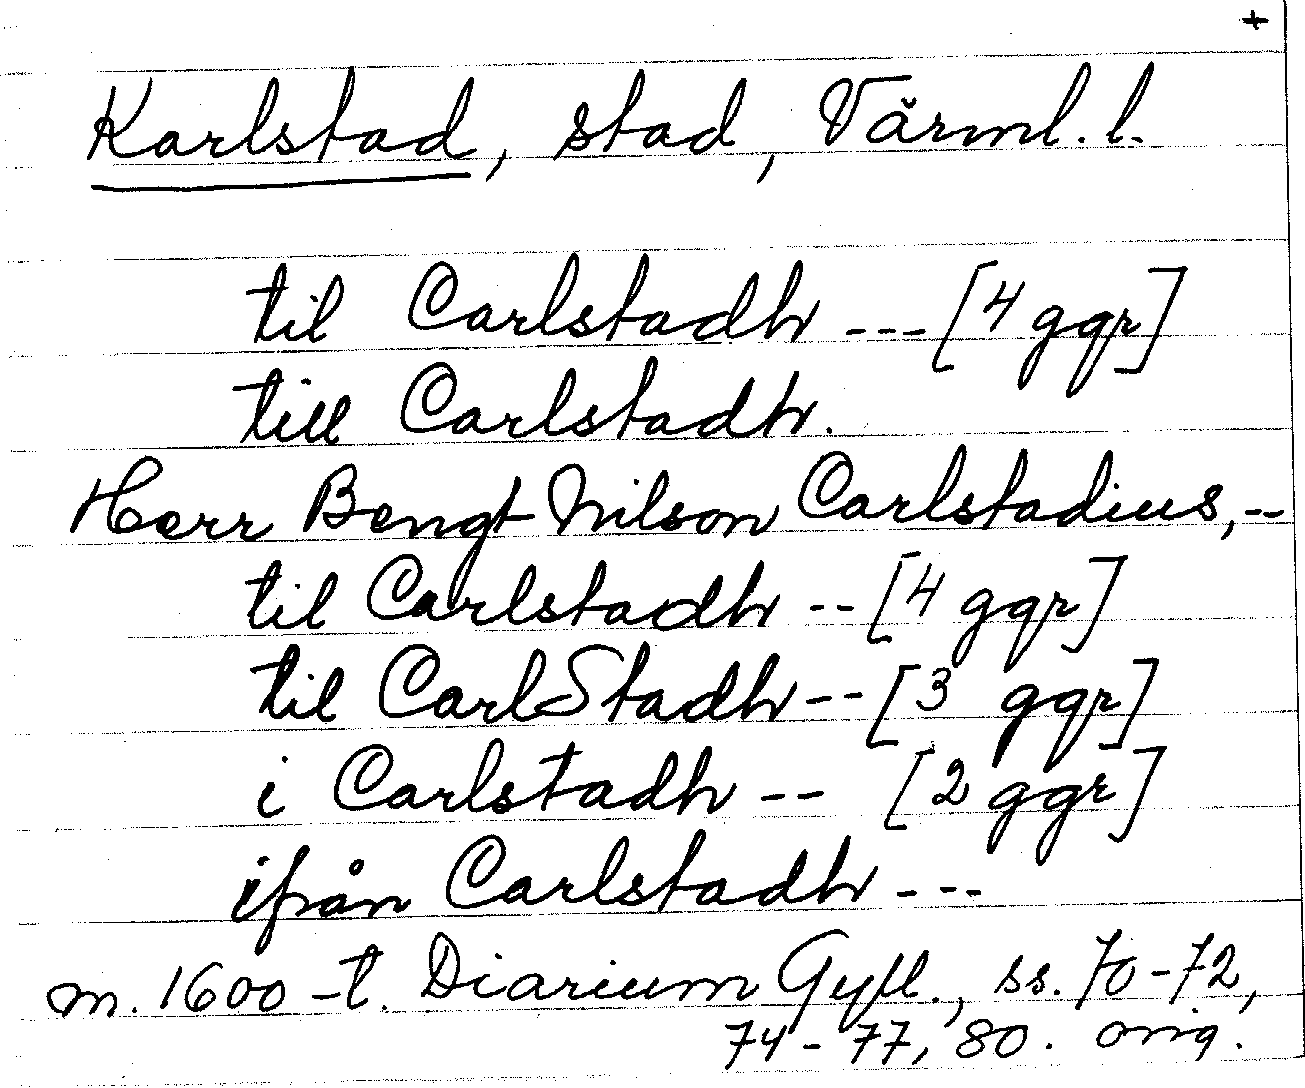 +
Karlstad, stad, Värml. l.
til Carlstadh --- [4 ggr]
till Carlstadh.
Herr Bengt Nilson Carlstadius, --
til Carlstadh -- [4 ggr]
til CarlStadh -- [3 ggr]
i Carlstadh -- [2 ggr]
ifrån Carlstadh ---
m. 1600-t. Diarium Gyll., ss. 70-72,
74-77, 80. orig.